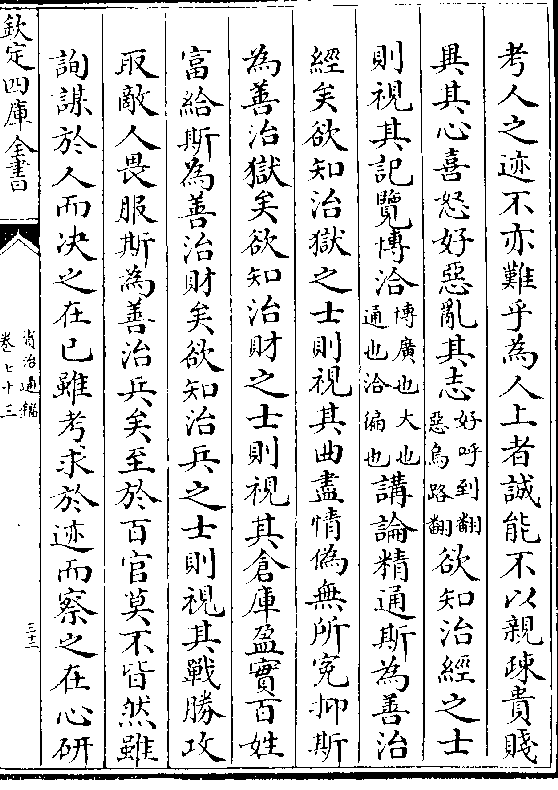 考人之迹不亦難乎為人上者誠能不以親疎貴賤
異其心喜怒好惡亂其志好呼到翻惡烏路翻欲知治經之士
則視其記覽博洽博廣也大也通也洽徧也講論精通斯為善治
經矣欲知治獄之士則視其曲盡情偽無所寃抑斯
為善治獄矣欲知治財之士則視其倉庫盈實百姓
富給斯為善治財矣欲知治兵之士則視其戰勝攻
取敵人畏服斯為善治兵矣至於百官莫不皆然雖
詢謀於人而决之在已雖考求於迹而察之在心研
欽定四庫全書
資治通鑑
卷七十三
三十二